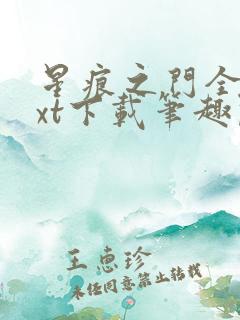 星痕之門全
xt下載筆趣
王惠珍
未經同意禁止轉載